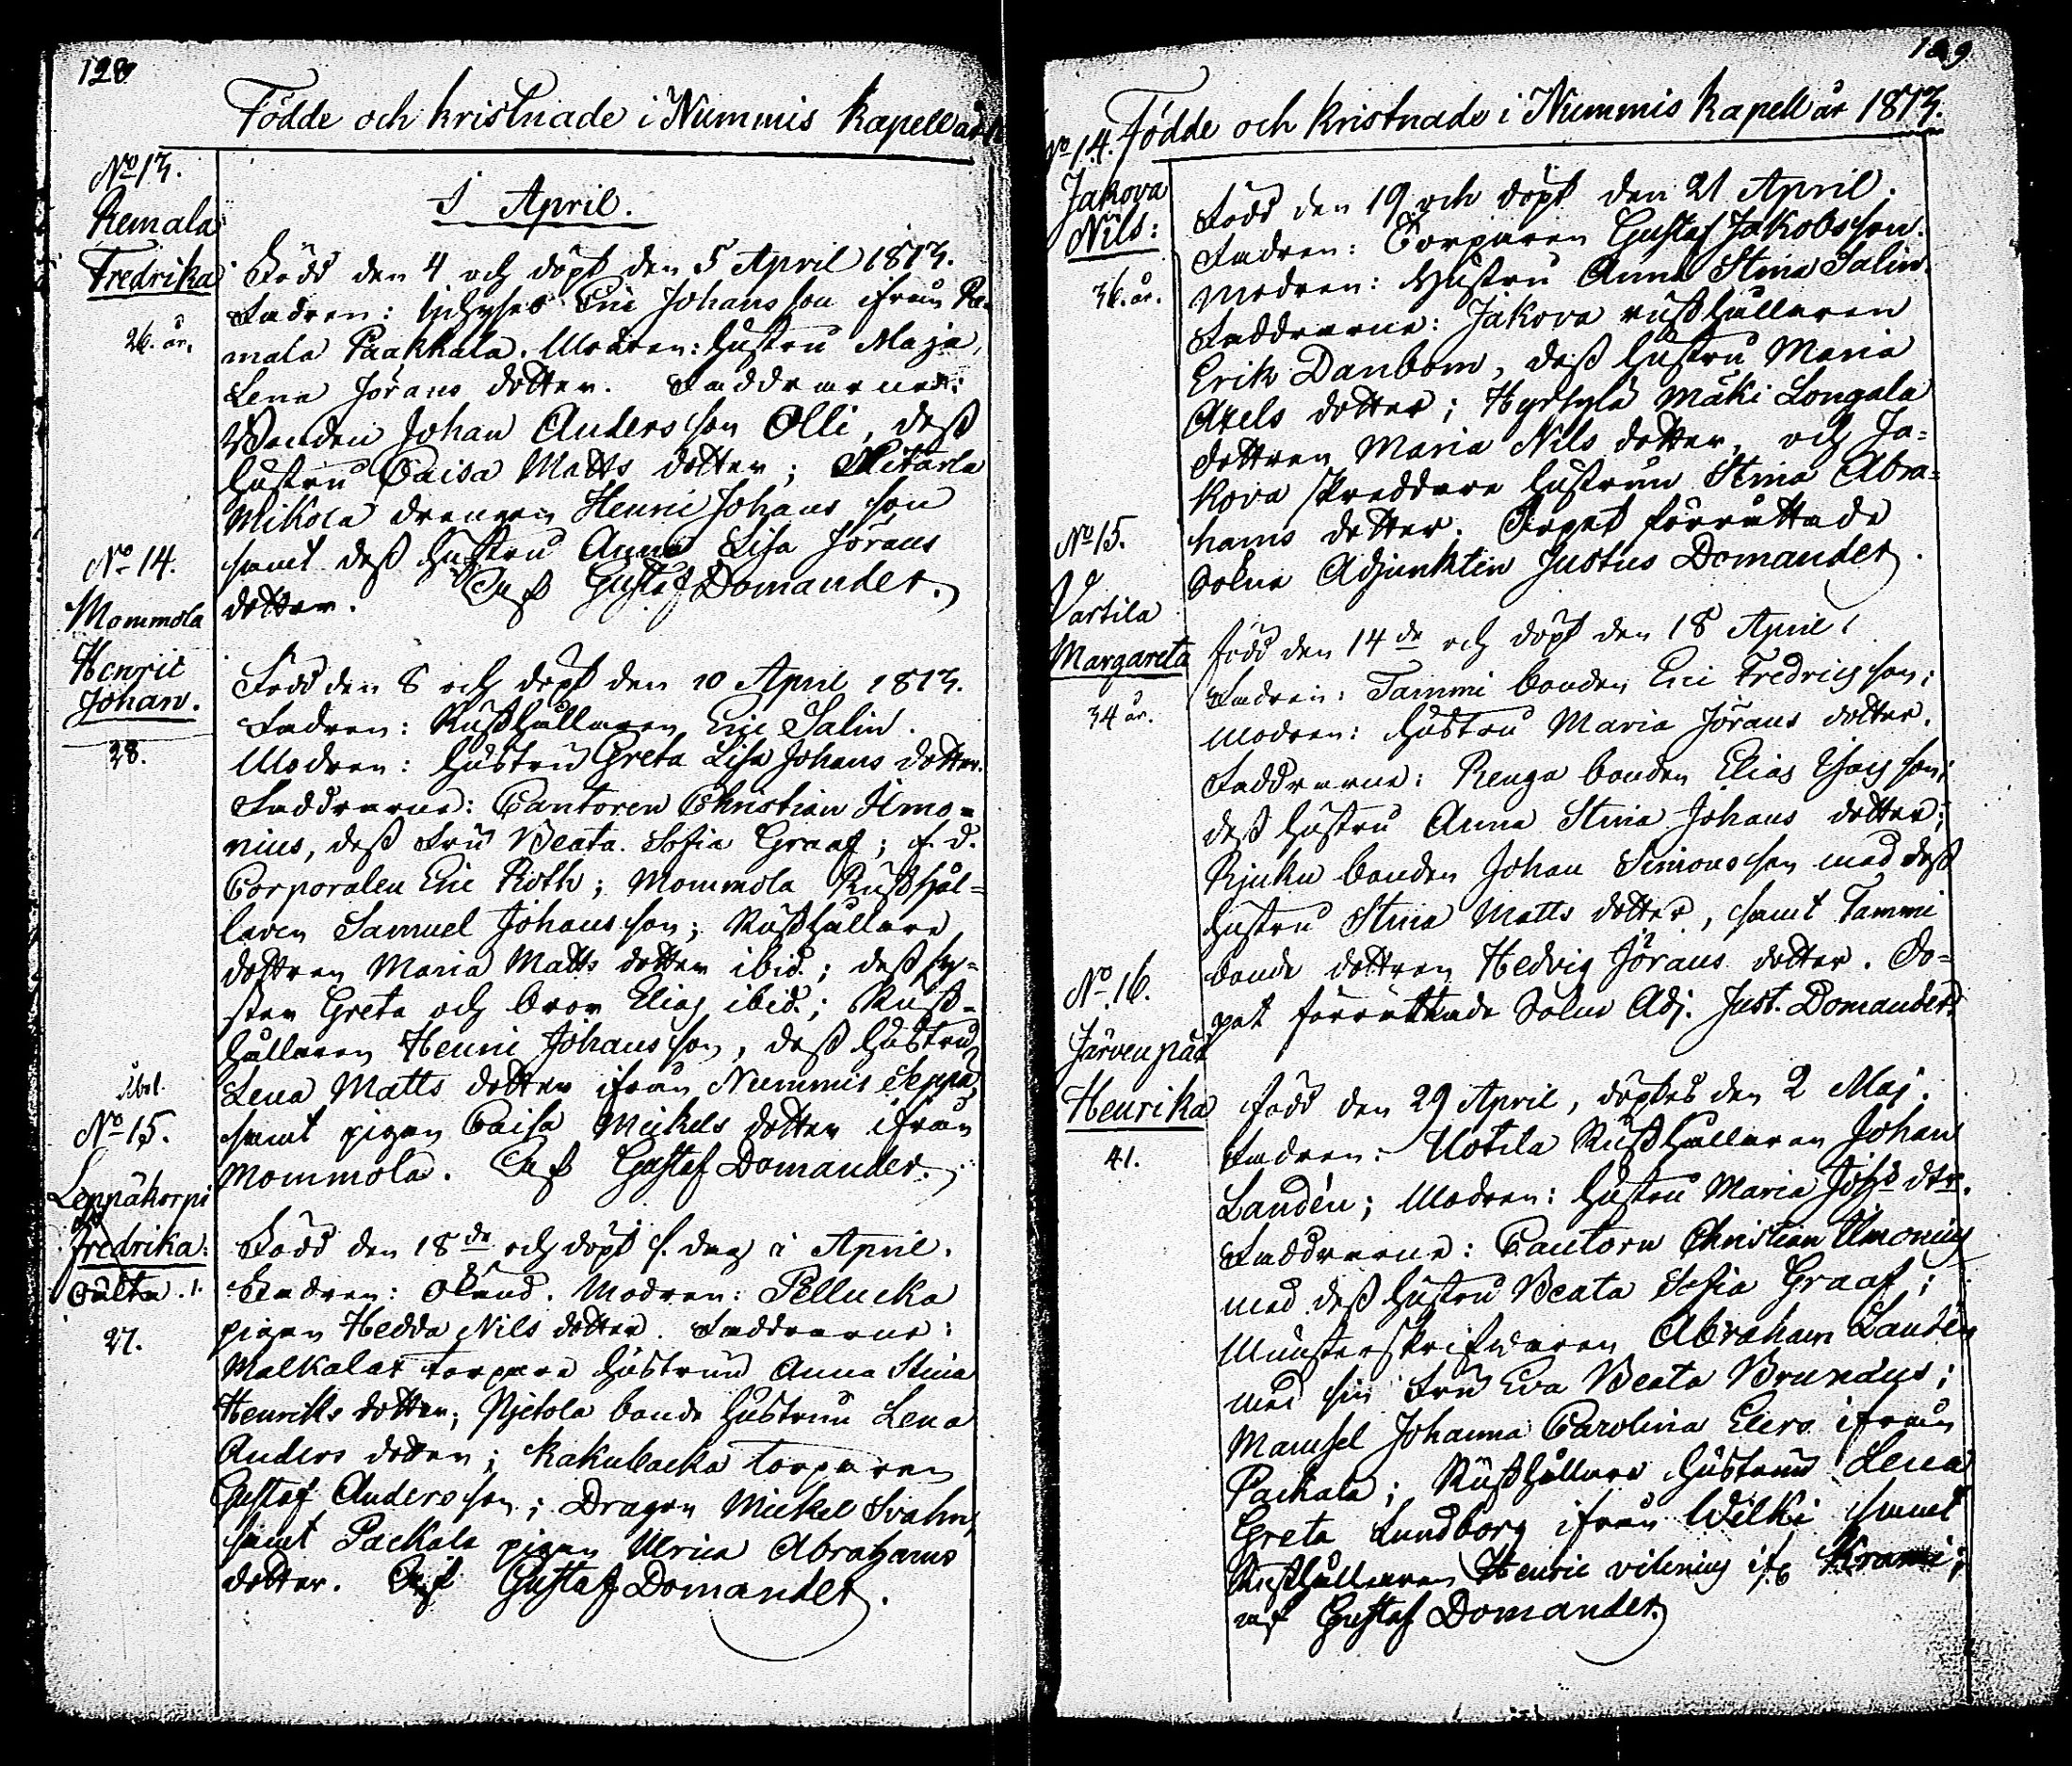 128
Födde och kristnade i Nummis Kapell år
No 13.
Remala
Fredrika
26. år.
I April.
Född den 4 och döpt den 5 April 1813.
Fadren: Eric Johansson ifrån Re-
mala Paakkala. Modren: hustru Maja
Lena Jörans dotter. Faddrarne:
Bonden Johan Andersson Olli, dess
hustru Caisa Matts dotter;
Mikola drengen Henric Johansson
samt dess hustru Anna Lisa Jörans
dotter. Gustaf Domander.
No 14.
Mommola
Henric
Johan.
28.
Född den 8 och döpt den 10 April 1813.
Fadren: Rusthållaren Eric Salin.
Modren: hustru Greta Lisa Johans dotter.
Faddrarne: Cantoren Christian Limo=
nius, dess Fru Beata Sofia Graaf; f. d.
Corporalen Eric Roth; Mommola Rusthål=
laren Samuel Johansson; Rusthållare
dottren Maria Matts dotter ibid.; dess sy=
ster Greta och bror Elias ibid.; Rust=
hållaren Henric Johansson, dess hustru
Lena Matts dotter ifrån Nummis Seppä,
samt pigan Caisa Mickels dotter ifrån
Mommola. Gustaf Domander.
No 15.
Leppäkorpi
Fredrika:
oäkta. 1.
27.
Född den 18de och döpt s. dag i April.
Fadren: okänd. Modren: Pellucka
pigan Hedda Nils dotter. Faddrarne:
Malkalax torpare hustrun Anna Stina
Henriks dotter; Njetola bonde hustrun Lena
Anders dotter; Kakubacka torparen
Gustaf Andersson; Dragon Mickel Svahn,
samt Packala pigan Ulrica Abrahams
dotter. Gustaf Domander.
129
Födde och kristnade i Nummis Kapell år 1813.
No 14.
Jakova
Nils:
36. år.
Född den 19 och döpt den 21 April.
Fadren: Torparen Gustaf Jakobsson.
Modren: Hustru Anna Stina Salin.
Faddrarne: Jakova rusthållaren
Erik Danbom, dess hustru Maria
Axels dotter; Hyrsylä Mäki Longala
dottren Maria Nils dotter, och Ja=
kova skreddare hustrun Stina Abra=
hams dotter. Dopet förrättade
Sokne Adjunkten Justus Domander.
No 15.
Vastila
Margareta
34 år.
Född den 14de och döpt den 18 April
Fadren: Tammi bonden Eric Fredricsson;
Modren: hustru Maria Jörans dotter.
Faddrarne: Renga bonden Elias
dess hustru Anna Stina Johans dotter;
bonden Johan Simonsson med dess
hustru Stina Matts dotter, samt Tammi
bonde dottren Hedvig Jörans dotter. Do=
pet förrättade Sokne Adj. Just. Domander.
No 16.
Järvenpää
Henrika
41.
Född den 29 April, döptes den 2 Maj.
Fadren: Uotila Rusthållaren Johan
Landén; Modren: hustru Maria Johs dtr.
Faddrarne: Cantorn Christian Limonius
med dess hustru Beata Sofia Graaf;
Mönsterskrifvaren Abraham Landén
med sin Fru Eva Beata Brunéus;
Mamsel Johanna Carolina Elers ifrån
Packala; Rusthållare hustrun Lena
Greta Lundborg ifrån Wilki samt
Rusthållaren Henric ifr. Krami;
Gustaf Domander.